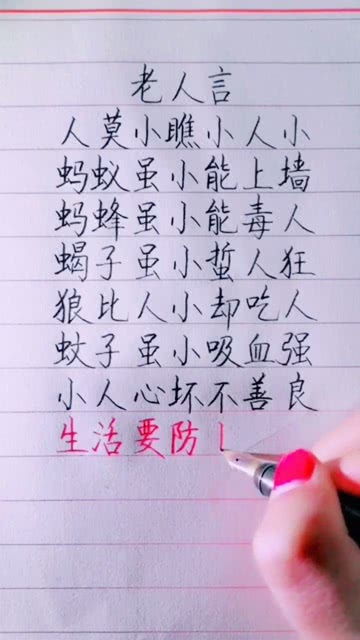 老人言
人莫小瞧小人小
蚂蚁虽小能上墙
蚂蜂虽小能毒人
蝎子虽小蜇人狂
狼比人小却吃人
蚊子虽小吸血强
小人心坏不善良
生活要防